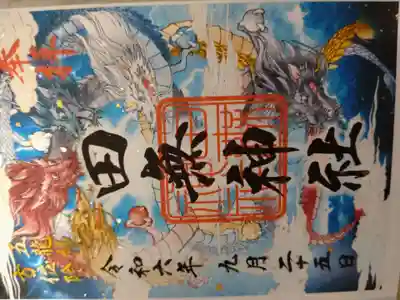 奉拝
田無神社
令和六年九月二十五日